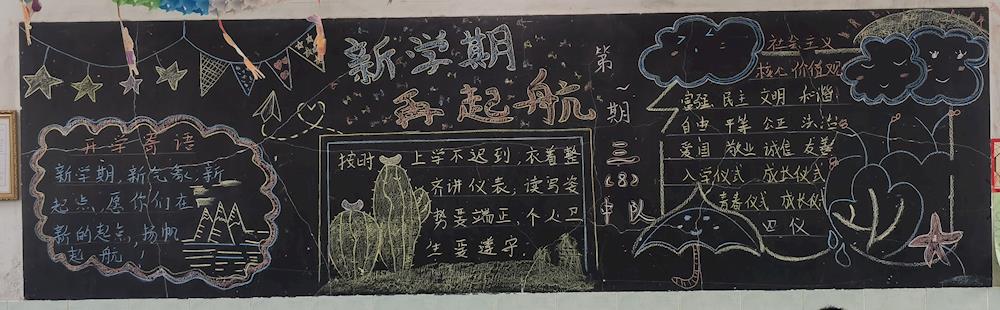 新学期
再起航
开学寄语
新学期,新气象,新
起点,愿你们在
新的起点,扬帆
起航!
按时上学不迟到,衣着整
齐讲仪表;读写姿
势要端正,个人卫
生要遵守.
第
一
期
三
(8)
中
队
社会主义
核心价值观
富强 民主 文明 和谐
自由 平等 公正 法治
爱国 敬业 诚信 友善
入学仪式 成长仪式
青春仪式 成长仪式
四仪